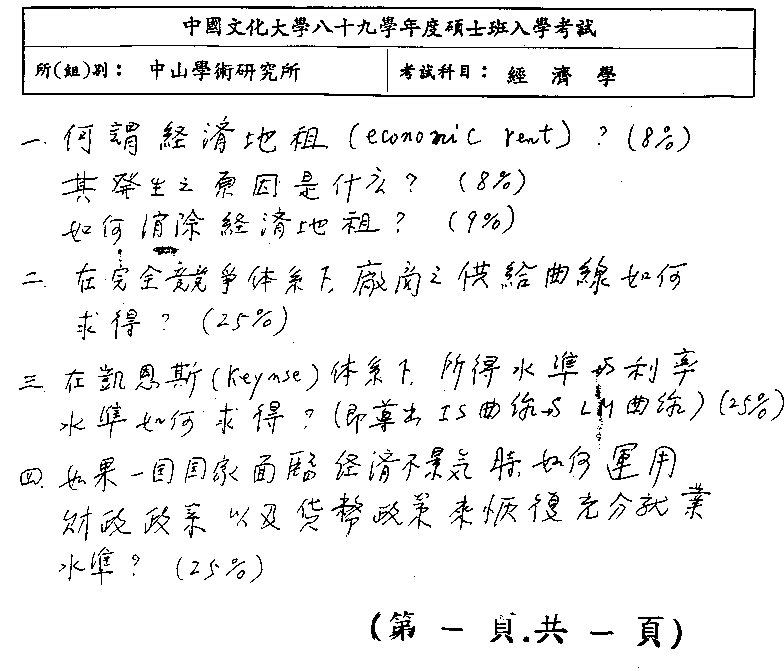 中國文化大學八十九學年度碩士班入學考試
所(組)別: 中山學術研究所 考試科目: 經 濟 學
一. 何謂経済地租 (economic rent) ? (8%)
其發生之原因是什么? (8%)
如何消除経済地租? (9%)
二. 在完全競爭体系下, 廠商之供給曲線如何
求得? (25%)
三. 在凱恩斯(Keynse)体系下, 所得水準与利率
水準如何求得? (即導出IS曲線与LM曲線) (25%)
四. 如果一国国家面臨経済不景気時, 如何運用
財政政策以及貨幣政策來恢復充分就業
水準? (25%)
(第 一 頁.共 一 頁)